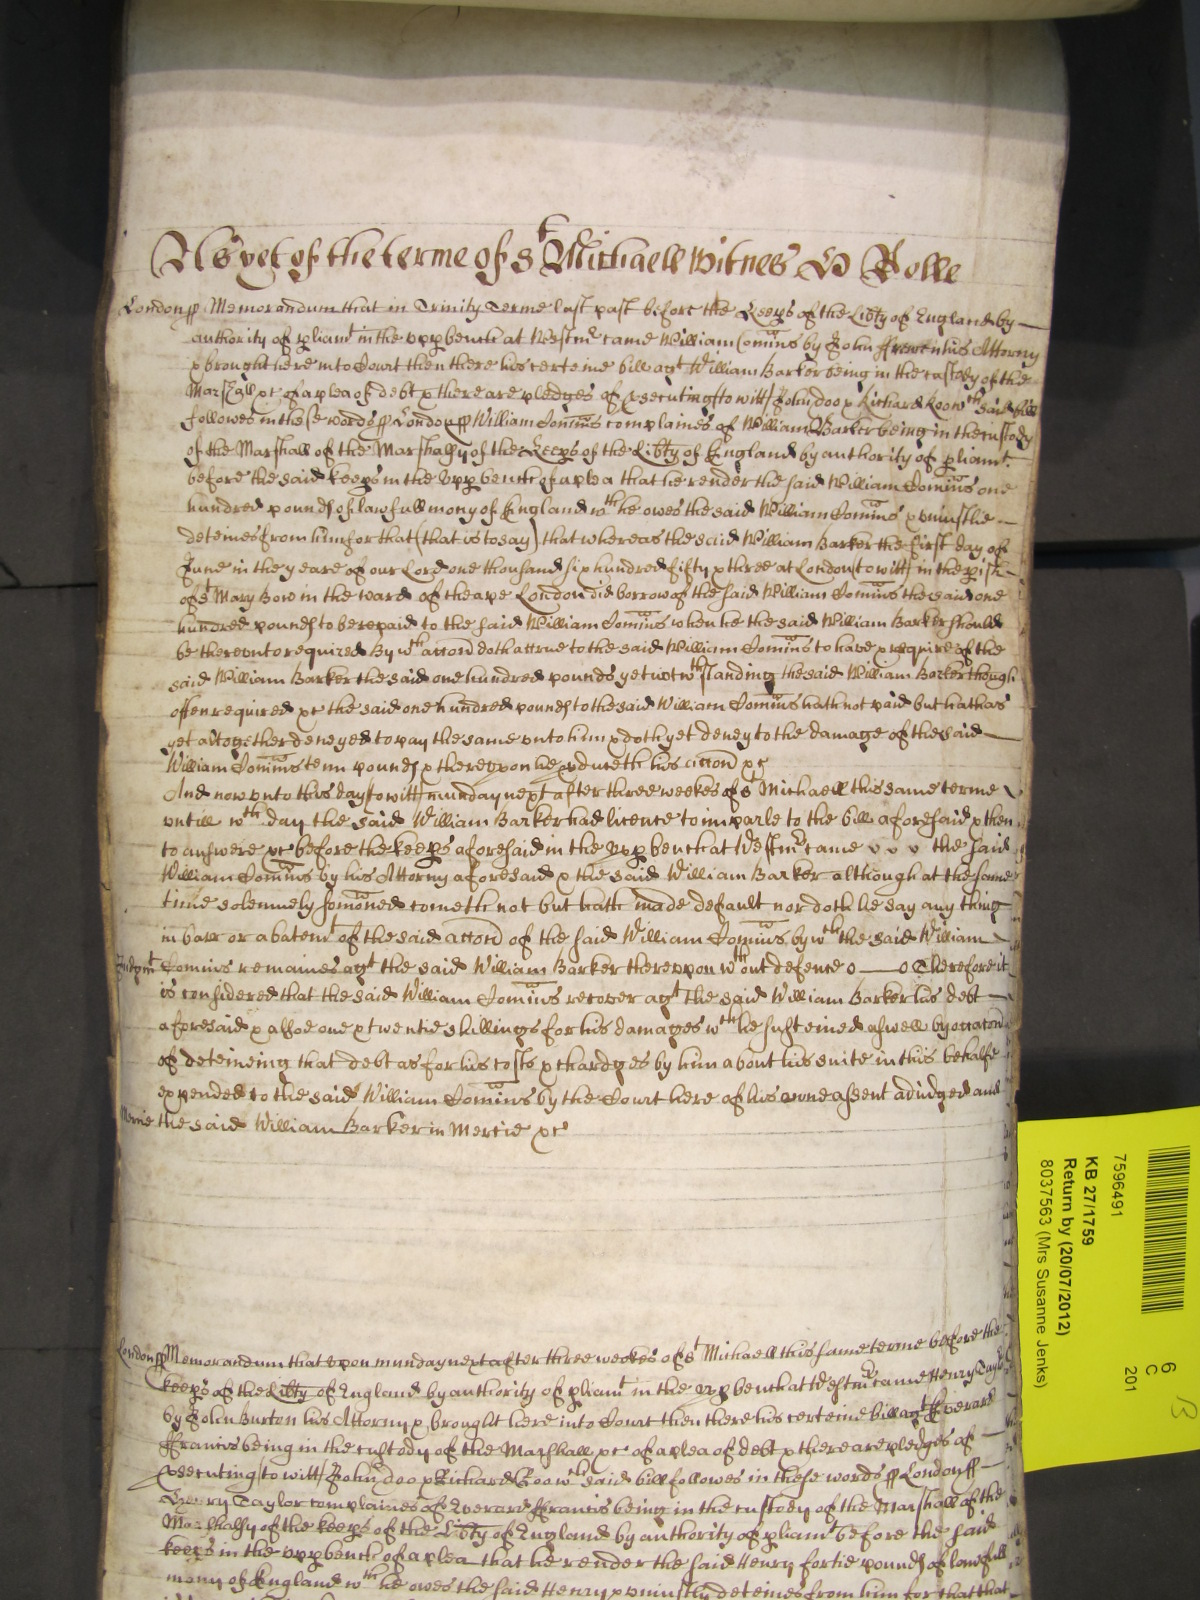 As yet of the terme of St Michaell Witnes H Rolle
London ss Memorandum that in Trinity Terme last past before the Keeps of the Libty of England by
authority of pliamt in the vpp bench at Westmr came William Comins by John his Attorny
& brought here into Court then there his certeine bill agt William Barker being in the custody of the
Marshall &c of a plea of debt & there are pledges of psecuting (to witt) John doo & Richard Roo wch said bill
followes in these words ss London ss William Comins complaines of William Barker being in the custody
of the Marshall of the Marshalsy of the Keeps of the Libty of England by authority of pliamt
before the said keeps in the vpp bench of a plea that he render the said William Comins one
hundred pounds of lawfull mony of England wch he owes the said William Comins & vniustlie
deteines from him for that (that is to say) that whereas the said William Barker the first day of
June in the yeare of our Lord one thousand six hundred fifty & three at London (to witt) in the pish
of St Mary Bow in the ward of Cheape London did borrow of the said William Comins the said one
hundred pounds to be repaid to the said William Comins when he the said William Barker should
be therevnto required By wch accon doth accrue to the said William Comins to have & require of the
said William Barker the said one hundred pounds yet notwthstanding the said William Barker though
often required &c the said one hundred pounds to the said William Comins hath not paid but hath as
yet altogether denyed to pay the same vnto him & doth yet deny to the damage of the said
William Comins tenn pounds & therevpon he pduceth his accon &c
And now vnto this day (to witt) munday next after three weekes of St Michaell this same terme
vntill wch day the said William Barker had licence to imparle to the bill aforesaid & then
to answere &c before the keeps aforesaid in the vpp bench at Westmr came v v v the said
William Comins by his Attorny aforesaid & the said William Barker although at the same
time solemnely somoned cometh not but hath made default nor doth he say any thing
in barr or abatemt of the said accon of the said William Comins by wch the said William
Judgmt Comins remaines agt the said William Barker therevpon wthout defence o—o Therefore it
is considered that the said William Comins recover agt the said William Barker his debt
aforesaid & alsoe one & twentie shillings for his damages wch he susteined aswell by occacon
of deteineing that debt as for his costs & chardges by him about his suite in this behalfe
expended to the said William Comins by the Court here of his owne assent adiudged and
Mercie the said William Barker in Mercie &c
London ss Memorandum that vpon munday next after three weekes of St Michaell this same terme before the
keeps of the Libty of England by authority of pliamt in the vpp bench at Westmr came Henry Taylor
by John Burton his Attorny & brought here into Court then there his certeine bill agt Everard
ffrancis being in the custody of the Marshall &c of a plea of debt & there are pledges of
psecuting (to witt) John doo & Richard Roo wch said bill followes in these words ss London ss
Henry Taylor complaines of Everard ffrancis being in the custody of the Marshall of the
Marshalsy of the keeps of the Libty of England by authority of pliamt before the said
keeps in the vpp bench of a plea that he render the said Henry fortie pounds of lawfull
mony of England wch he owes the said Henry & vniustly deteines from him for that that
7596491
KB 27/1759
Return by (20/07/2012)
8037563 (Mrs Susanne Jenks)
6
C
201